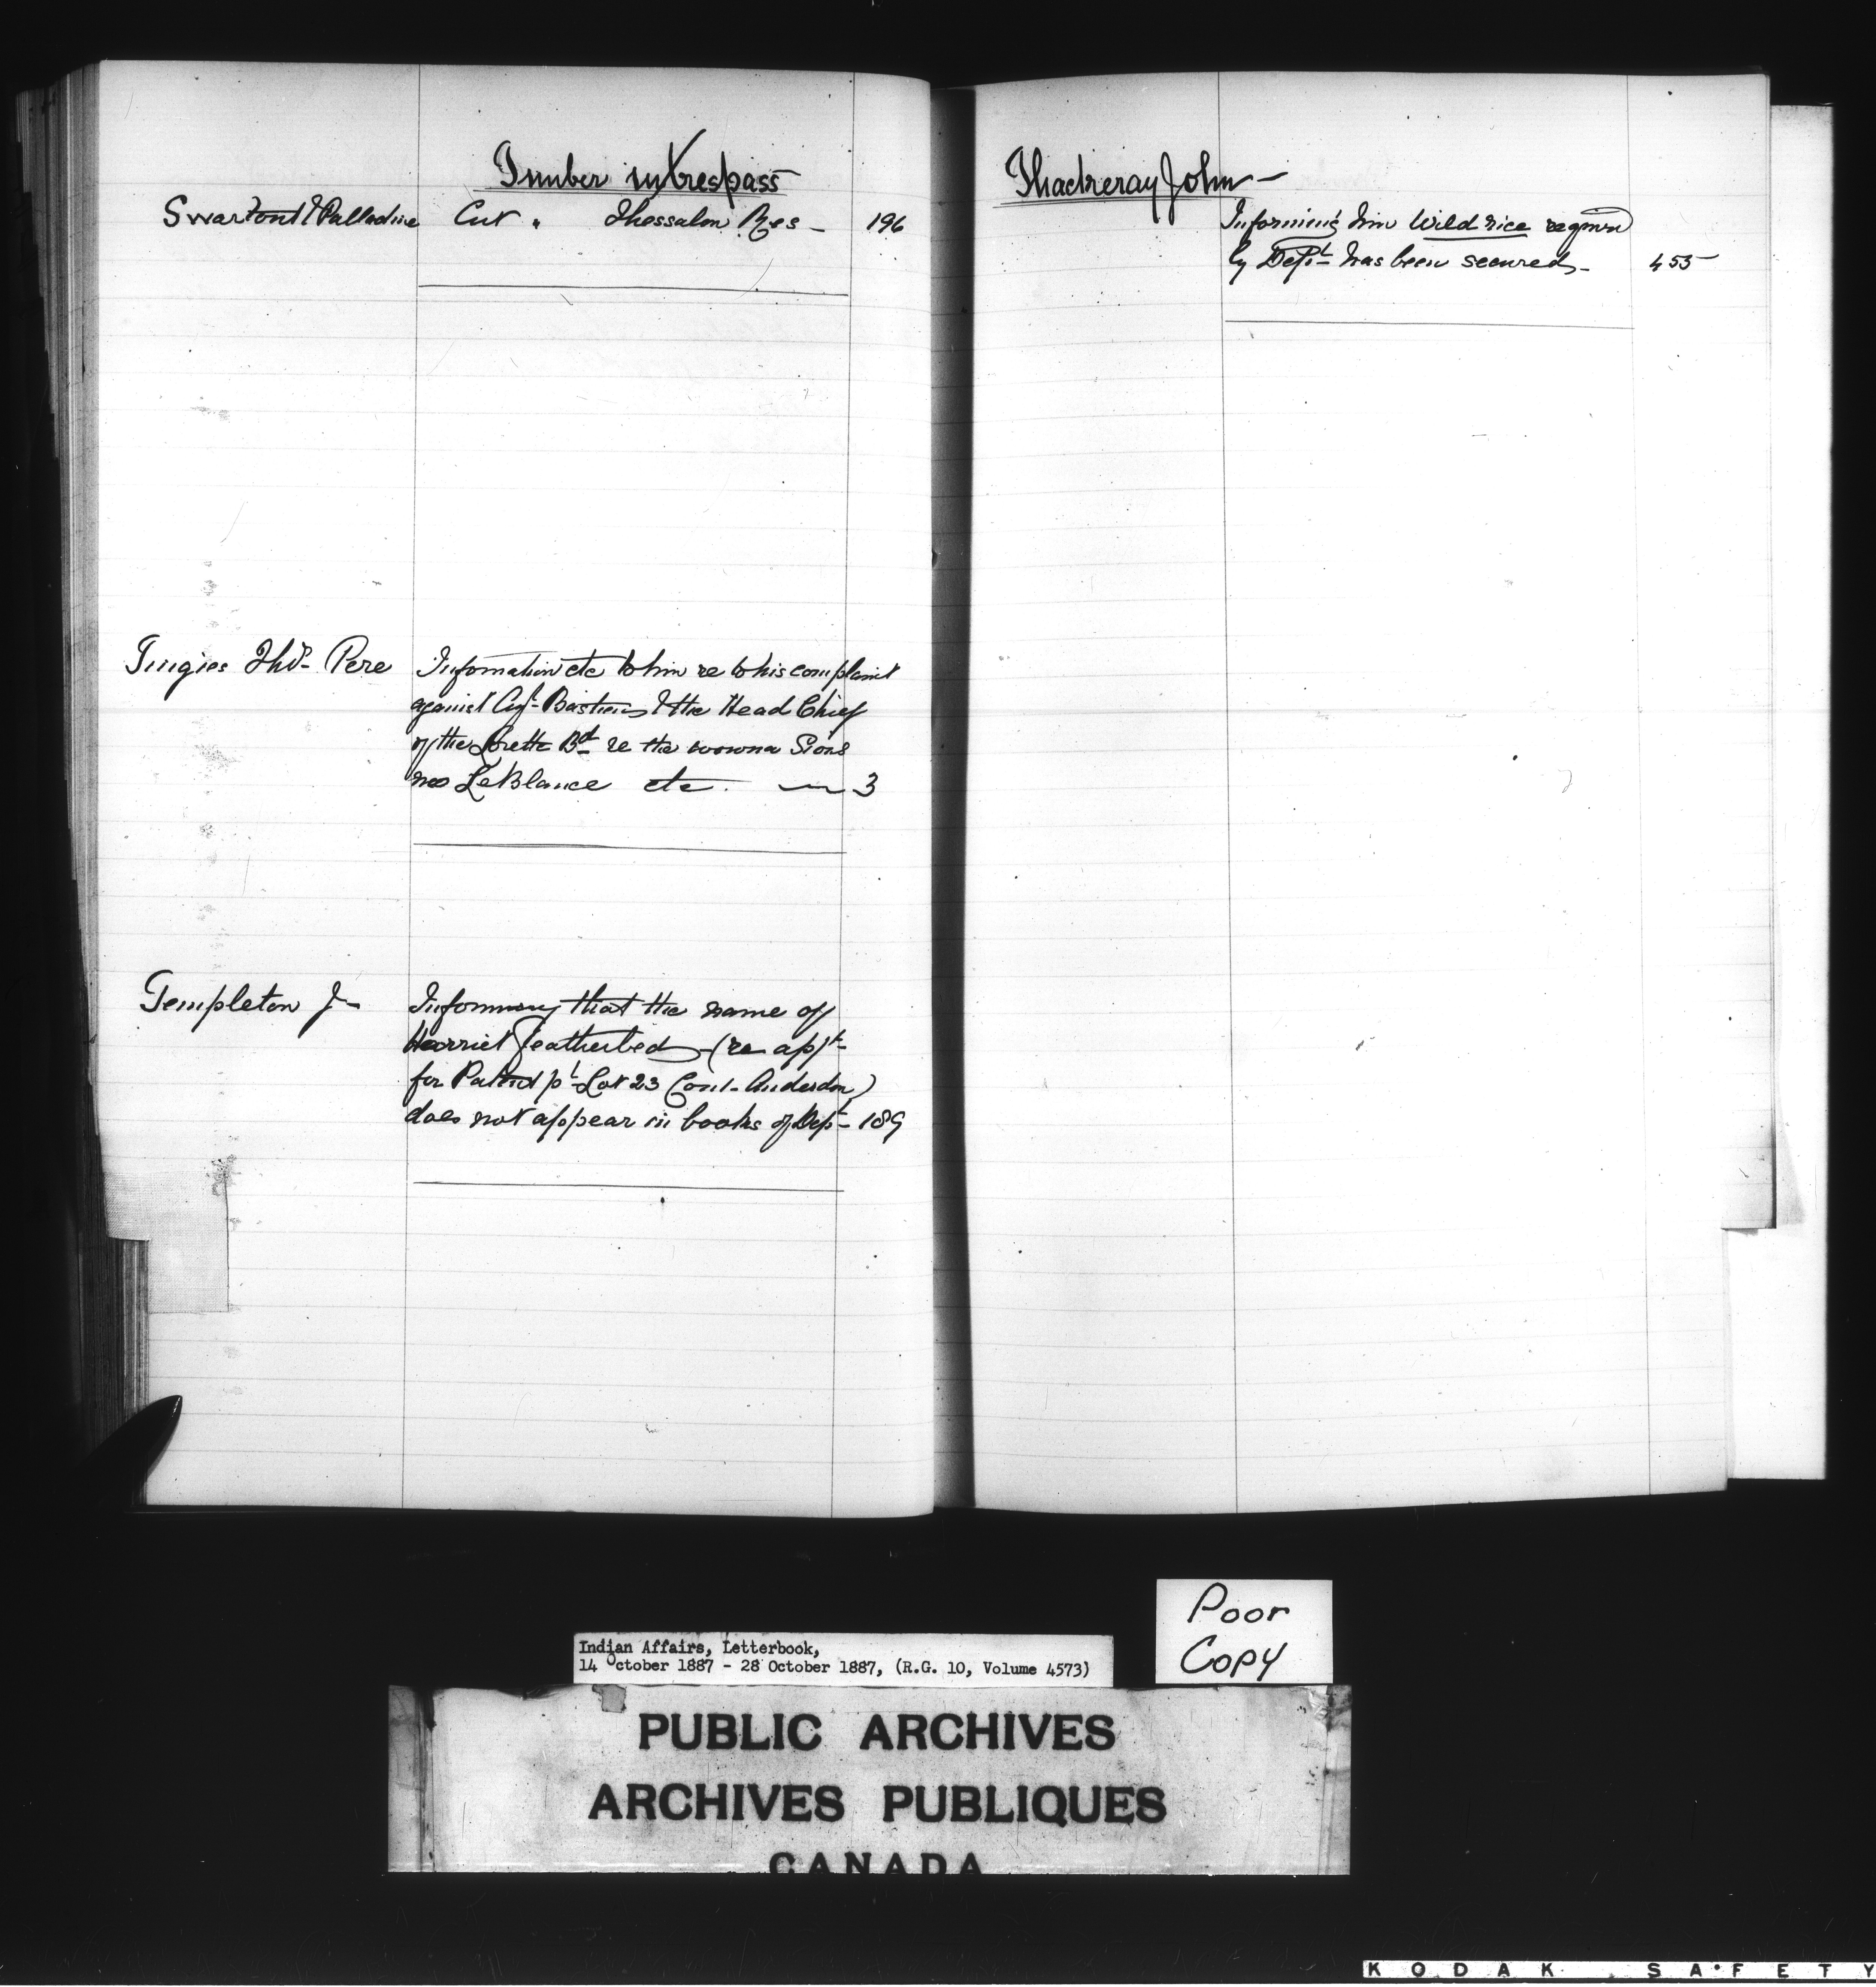 Timber in trespass
Swartout & Palladine Cut " Thessalon Res - 196
Tingies Thos. Pere Information etc to him re to his complaint
against Agt. Bastien & the Head Chief
of the Lorette Bd re the woman Sioui
nee LeBlance etc. — 3
Templeton J- Informing that the name of
Harriet Featherbed - (re apln
for Patent pt Lot 23 Con 1 - Anderdon)
does not appear in books of Dept - 189
Thackeray John -
Informing him Wild rice required
by Dept. has been secured - 455
Poor
Copy
Indian Affairs, Letterbook,
14 October 1887 - 28 October 1887, (R.G. 10, Volume 4573)
PUBLIC ARCHIVES
ARCHIVES PUBLIQUES
CANADA
KODAK SAFETY